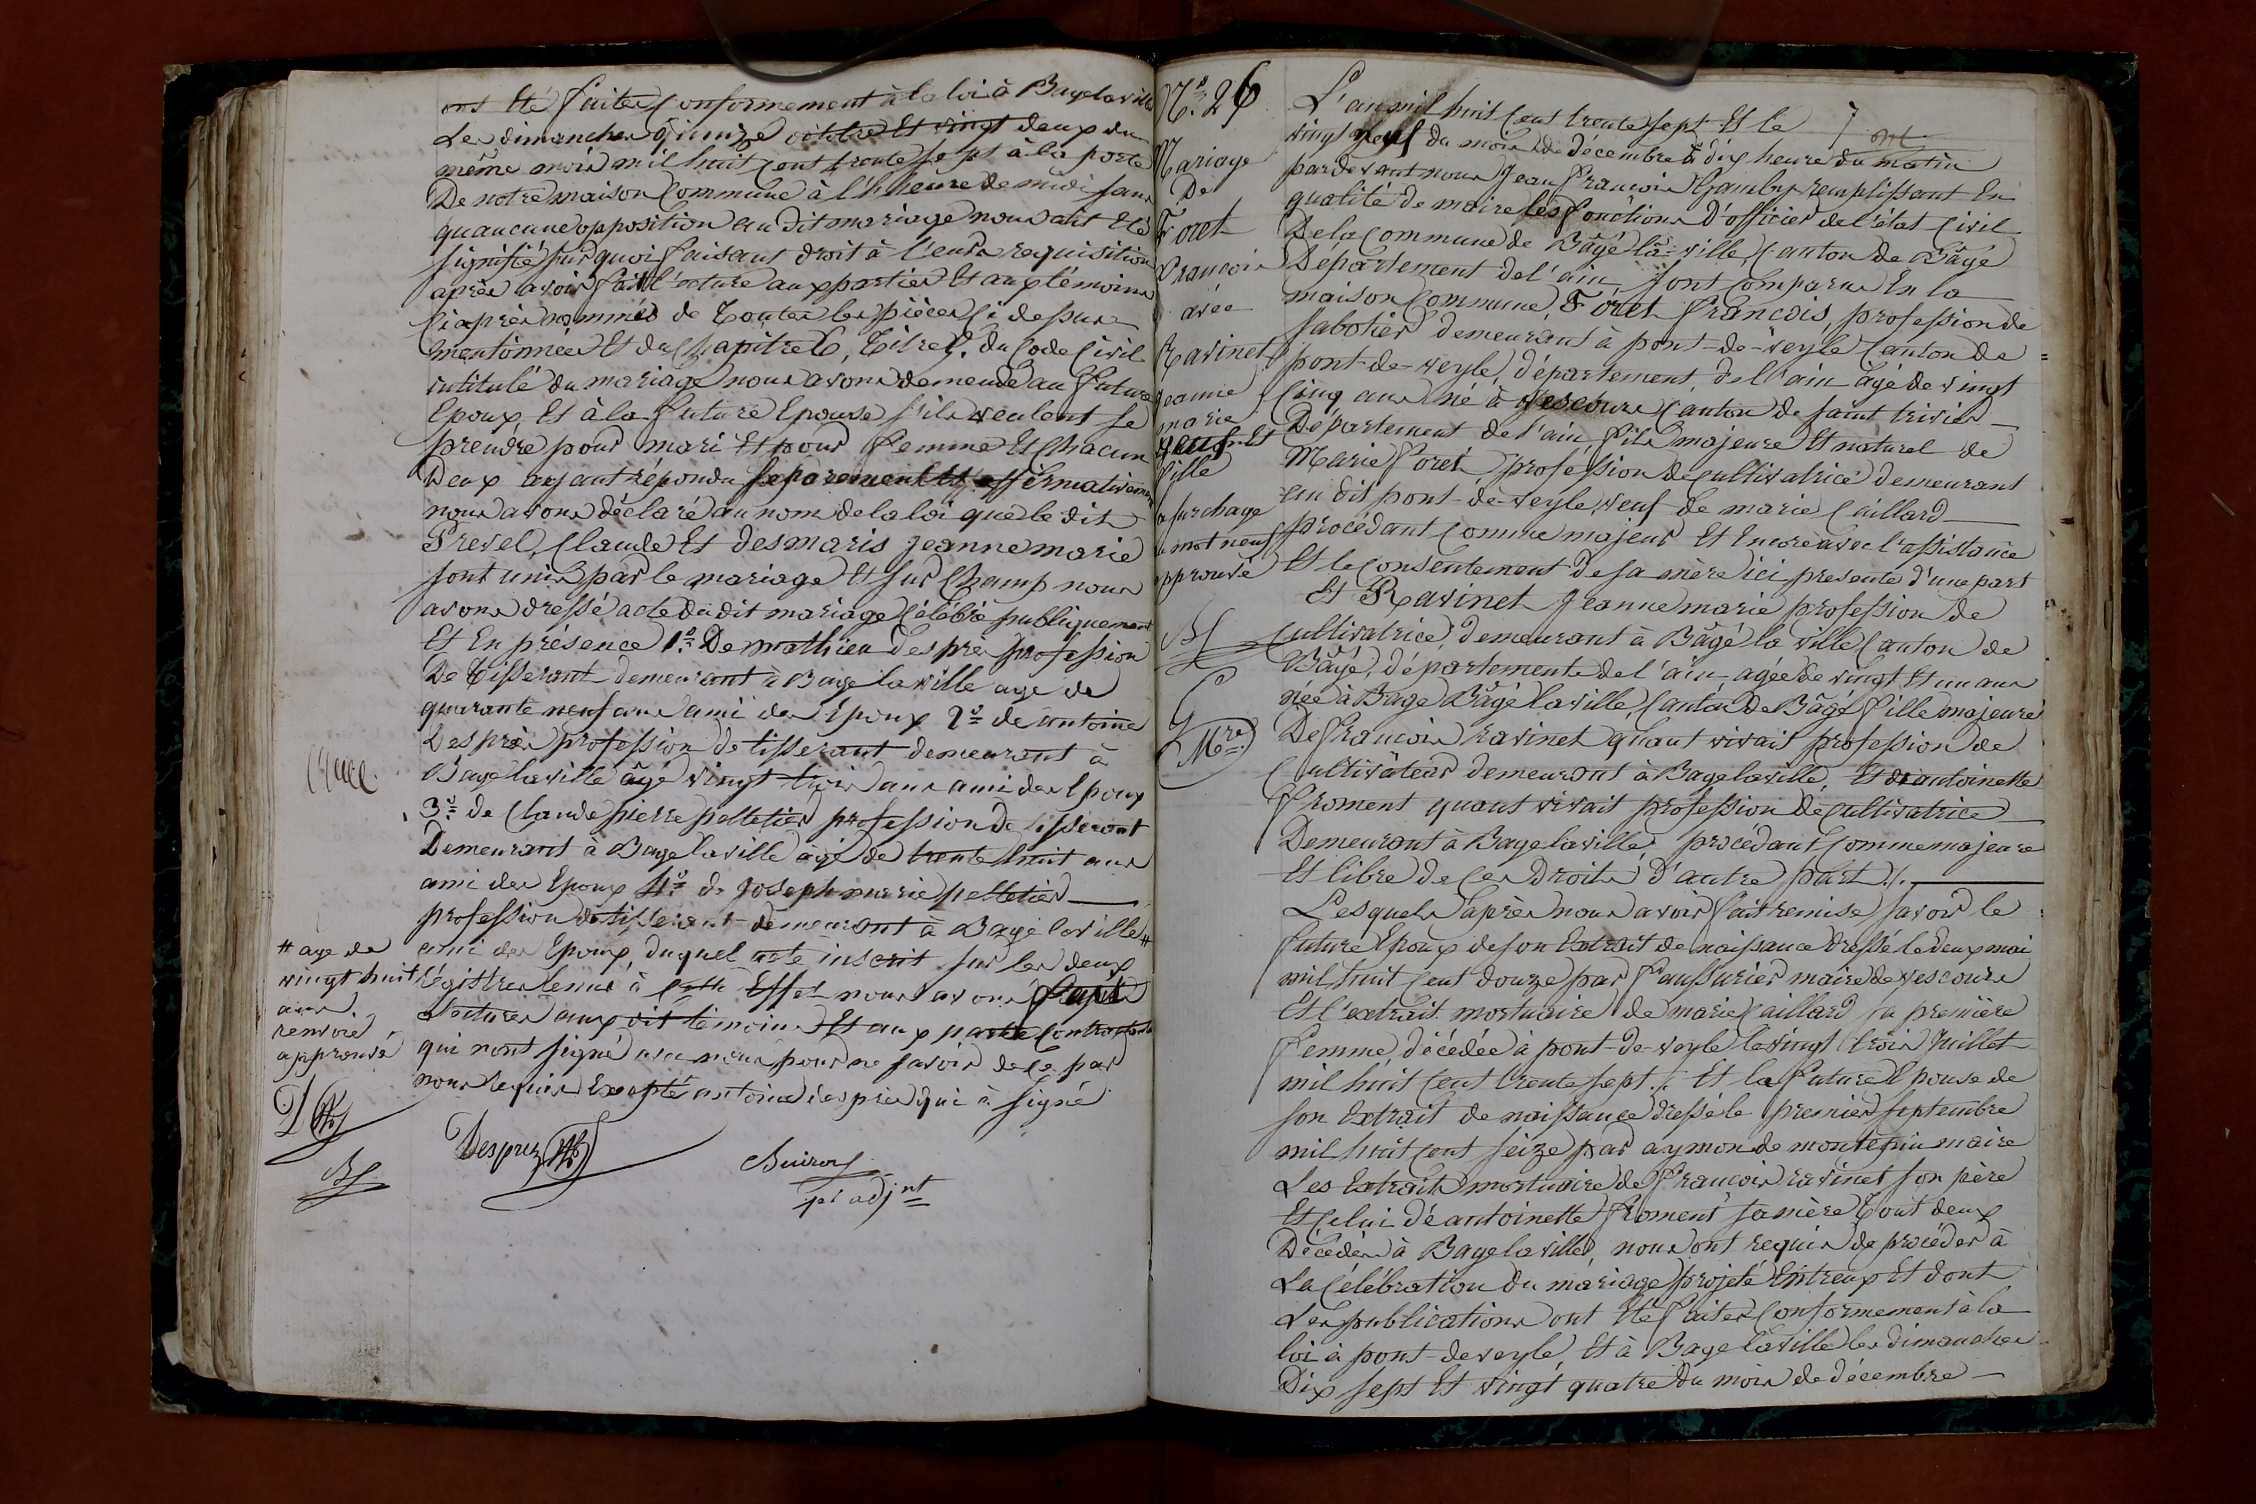 ont été faites conformement à la loi à Bagelaville
Les dimanches quinze octobre et vingt deux du
même mois mil huit cent trente sept à la porte
De notre maison commune à l'heure de midi sans
quaucune opposition au dit mariage nous ait été
signifié sur quoi faisant droit à leurs requisition
après avoir fait l'ecture aux parties et aux témoins
ci après nommés de toutes les pièces ci dessus
mentionnées et du chapitre 6, titre 5. du Code Civil
intitulé du mariage nous avons demendé au future
Epoux Et à la future Epouse s'ils veulent se
prendre pour mari Et pour femme Et chacun
Deux ayant répondu séparement Et affirmativement
nous avons déclaré au nom de la loi que le dit
Prevel, Claude Et desmaris jeanne marie
sont unis par le mariage Et sur champ nous
avons dressé acte du dit mariage célébré publiquement
Et En présence 1.º De mathieu despres profession
De tisserant demeurant à Bage la ville age de
quarante neuf ans ami des Epoux 2.º de antoine
Desprès profession de tisserant demeurant à
Bagelaville âgé vingt trois ans ami des Epoux
3.º de Claude pierre pelletier profession de tisserant
Demeurant à Bagelaville âgé de trente huit ans
ami des Epoux 4.º de joseph marie pelletier
profession de tisserant demeurant à Bagé laville #
ami des Epoux, duquel acte inscrit sur les deux
régistres tenus à cette Effet nous avons fait
Lectures aux dit témoins Et aux partie contractante
qui nont signé avec nous pour ne savoir de ce par
nous requis Excepté antoine desprès qui à signé
# age de
vingt huit
ans.
renvoie
approuvé
D
B
Desprez
Buiron
pr adjnt
N.º 26
Mariage
De
Foret
Francois
avée
Ravinet
jeanne
marie
neuf Et
fille
la surchage
du mot neuf
approuvé
B
G
Mre
L'an mil huit cent trente sept Et le
vingt neuf du mois de décembre à dix heure du matin
pardevant nous Jean Francois Gamby remplissant En
qualité de maire les fonctions d'officier de l'état civil
De la commune de Bâgé-la-ville, canton de Bâgé
Département de l'ain, sont comparus En la
maison commune, Foret Francois, profession de
sabotier demeurant à pont-de-veyle canton de
pont-de-veyle, département, de l'ain âgé de vingt
cinq ans né à vescours canton de saint trivier
Département de l'ain fils majeure Et naturel de
Marie foret profession de cultivatrice demeurant
au dit pont-de-veyle, veuf de marie Caillard
procédant comme majeur Et Encore avec l'assistance
Et le consentement de sa mère ici presente d'une part
Et Ravinet Jeanne marie profession de
cultivatrice, demeurant à Bâgé la ville canton de
Bâgé, département de l'ain agée de vingt Et un ans
née à Bage Bâgé la ville, canton de Bâgé fille majeure
De francois ravinet quant vivait profession de
Cultivateur demeurant à Bagelaville, Et de antoinette
froment quant vivait profession de cultivatrice
Demeurant à Bagelaville procédant comme majeure
Et libre de ces droits d'autre part ./.
Lesquels après nous avoir fait remise savoir le
future Epoux de son Extrait de naissance dressé le deux mai
mil huit cent douze par faussurier maire de vescours
Et l'extrait mortuaire de marie caillard sa première
femme, décédée à pont-de-veyle le vingt trois Juillet
mil huit cent trente sept ./. Et la future Epouse de
son Extrait de naissance dressé le premier septembre
mil huit cent seize par aymon de montepin maire
Les Extraits mortuaire de francois ravinet son père
Et celui de antoinette froment sa mère tout deux
Décédés à Bagelaville, nous ont requis de procéder à
La célébration du mariage projeté Entreux Et dont
Les publications ont été faites conformement à la
loi à pont-deveyle Et à Bage laville les dimanches
Dix sept Et vingt quatre du mois de décembre